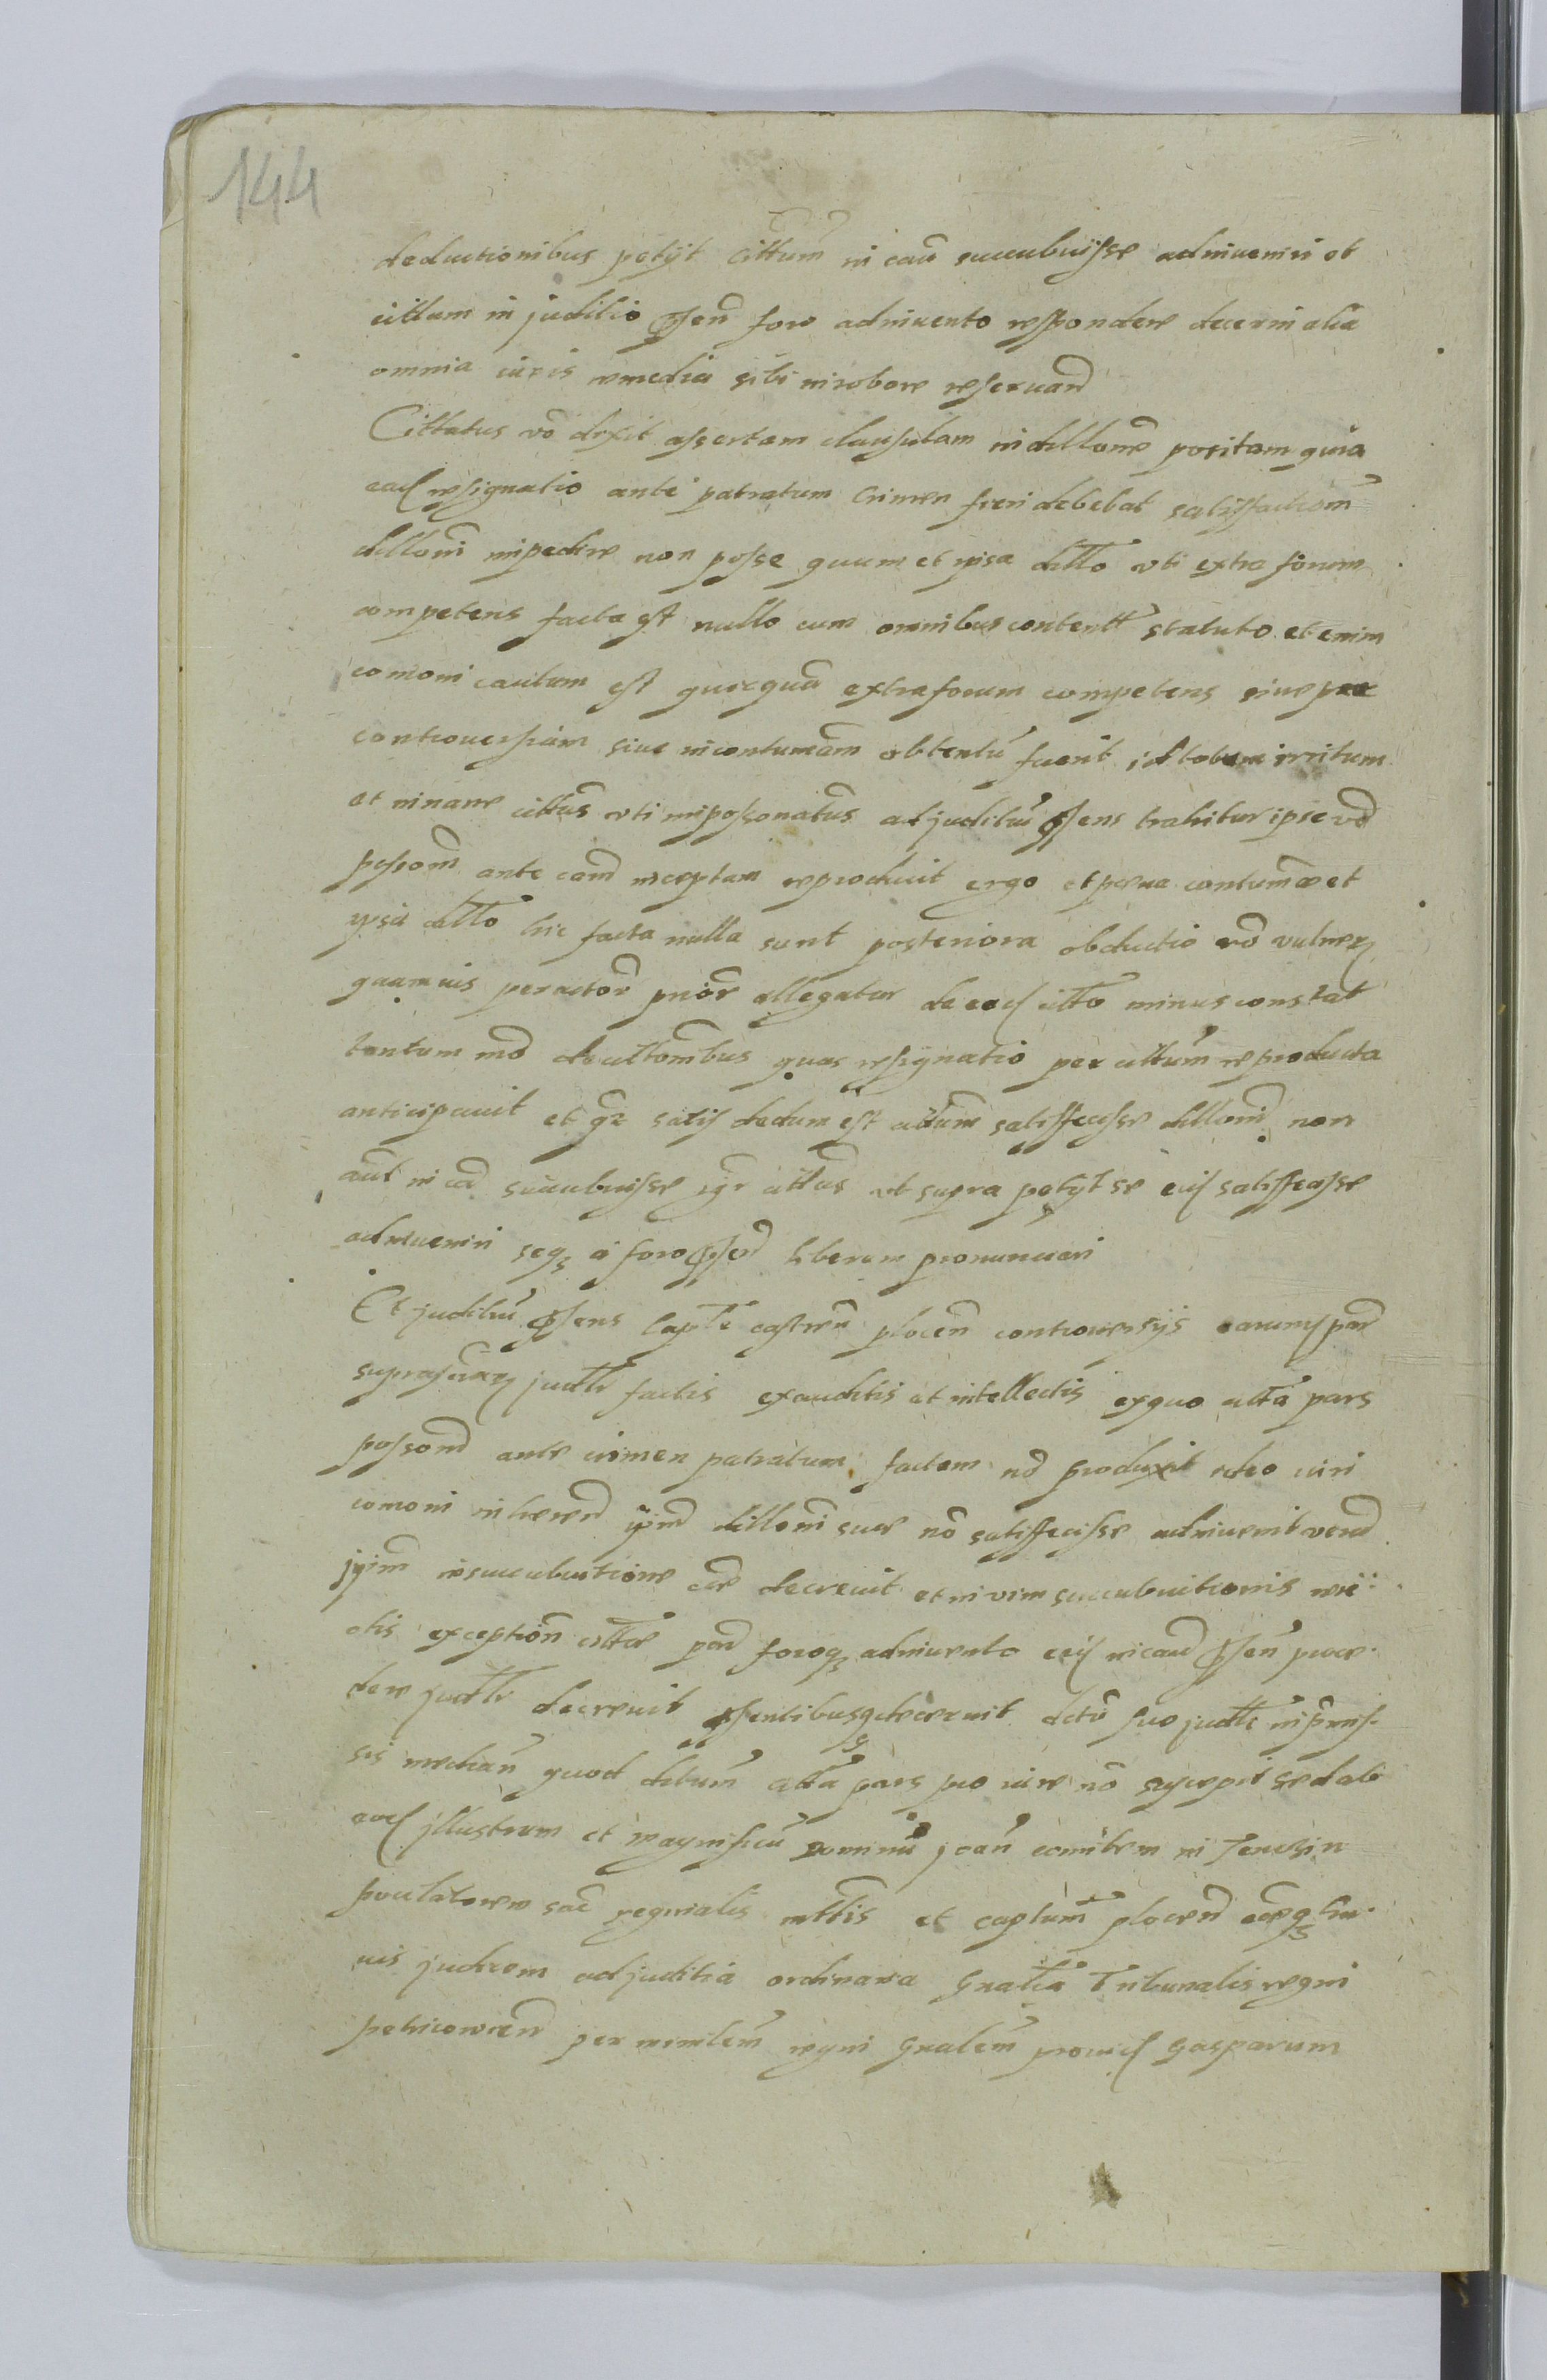 144
deductionibus petijt Cittum in cau succubuisse adinueniri et
cittum in judicio Psen foro adinuento respondere decerni alia
omnia iuris remedia sibi in robore reseruan
Cittatus vo dixit assertam clausulam in dillone positam quia
ead resignatio ante patratum Crimen fieri debebat satisfactiom
dilloni impedire non posse quum et ipsa dillo vti extra forum
competens facta est nullo cum omnibus contentt statuto etenim
comoni cautum est quicquid extra forum competens siue per
controuersiam siue in contumam obtentu fuerit id totum irritum
et inane cittus vti impossonatus ad judiciu Psens trahitur ipse vo
possom ante cam inceptam reproducit ergo et poena contumae et
ipsa dillo hic facta nulla sunt posteriora obductio vo vulner
quamuis per actor prior allegatur de eod citto minus constat
tantum mo de cittombus quas resignatio per cittum reproducta
anticipauit et gr satis dedum est cittum satisfecisse dilloni non
aut in ca succubuisse igr cittus vt supra petijt se eid satisfecisse
adinueniri seq a foro Psen liberum pronunciari
Et judiciu Psens Capte castren plocen controuersijs earumd par
suprascrar judtr factis exauditis et intellectis ex quo citta pars
posson ante crimen patratum factam no produxit ideo iuri
comoni inheren ipm dilloni sue no satisfecisse adinuenit veru
ipm in succubuitione cae decreuit et in vim succubuitionis reie
ctis exception cittae par foroq adinuento eid in cau Psen proce
dere judtr decreuit Psentibusq decernit dcto suo judtr in pmis
sis median quod dctum citta pars pro iure no suscepit sed ab
eod jllustrem et magnificu Dominu joan comitem in Tenczin
pocillatorem sac regialis mttis et captum plocen eorq hu
ius judicem ad juditia ordinaria Gnalia Tribunalis regni
petricouien per ministem regni Gnalem prouid Gasparum